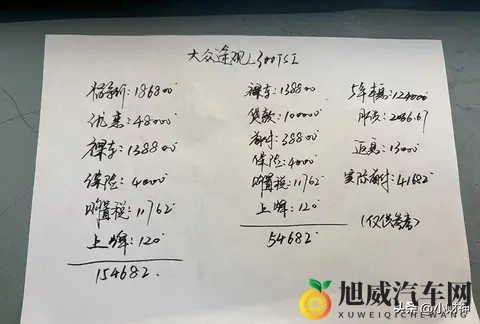 大众途观L300TSI
指导价:186800
优惠:48000
裸车:138800
保险:4000
购置税:11762
上牌:120
154682
裸车:138800
贷款:100000
首付:38800
保险:4000
购置税:11762
上牌:120
54682
5年本息:124000
月供:2066.67
返息:13000
实际首付:41682
(仅供参考)
旭威汽车网
XUWEIQICHEWANG